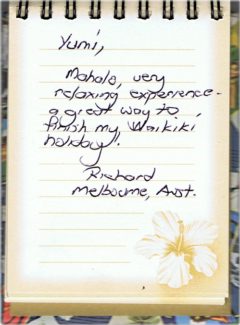 Yumi,
Mahalo, very
relaxing experience -
a great way to
finish my Waikiki
holiday!
Richard
Melbourne, Aust.